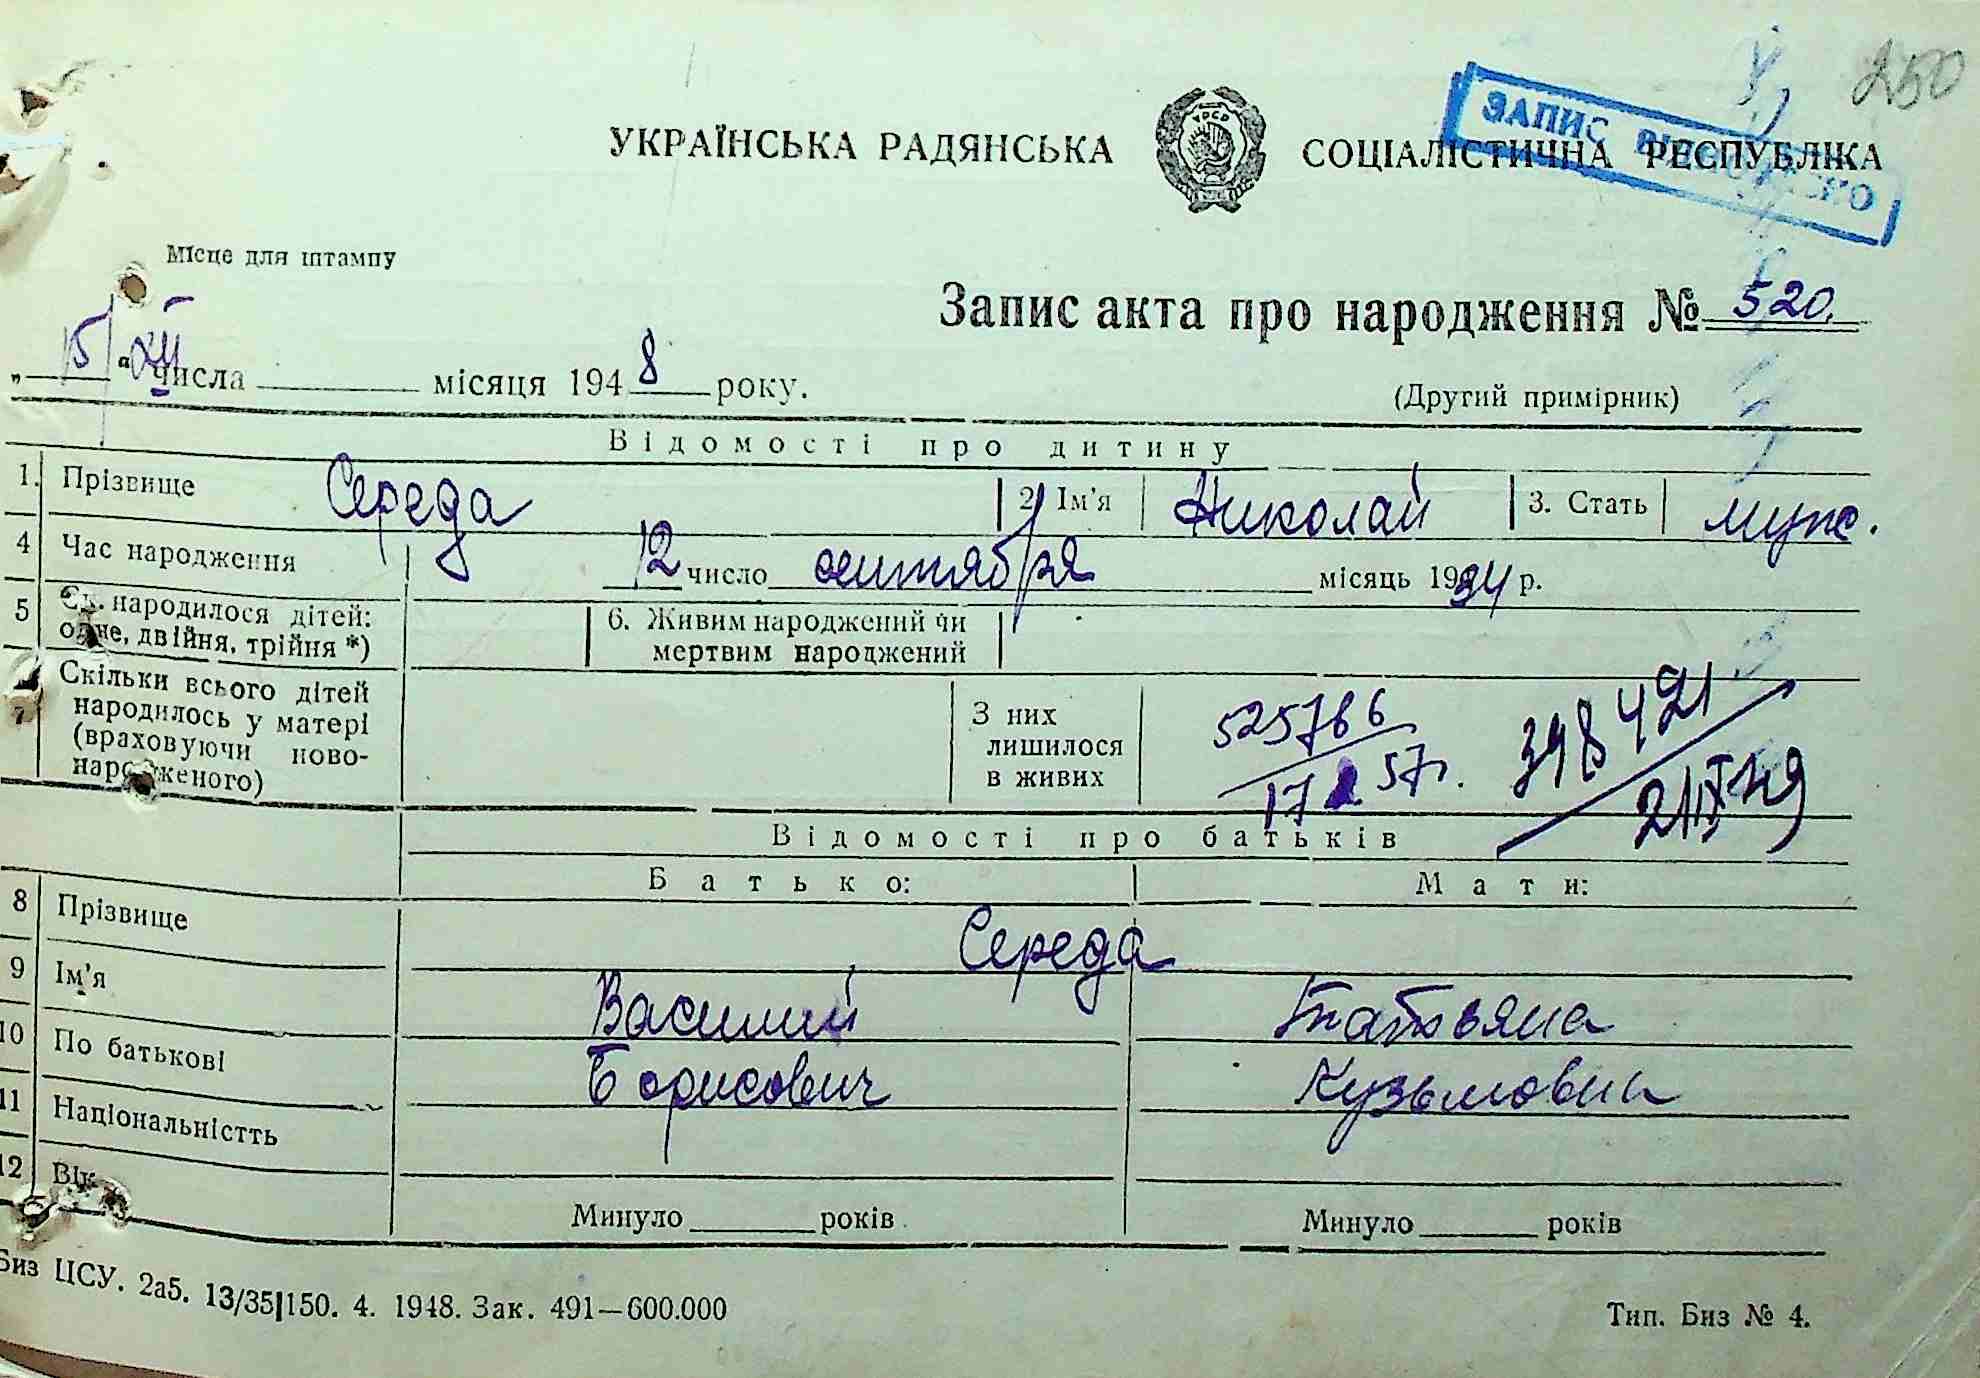 250
ЗАПИС ВІДНОВЛЕНО
УКРАЇНСЬКА РАДЯНСЬКА СОЦІАЛІСТИЧНА РЕСПУБЛІКА
УРСР
Місце для штампу
Запис акта про народження № 520.
„ 15 “ XII числа місяця 1948 року.
(Другий примірник)
Відомості про дитину
1. Прізвище Середа 2. Ім'я Николай 3. Стать муж.
4 Час народження 12 число сентября місяць 1934 р.
5 Ск. народилося дітей: одне, двійня, трійня *) 6. Живим народжений чи мертвим народжений
7 Скільки всього дітей народилось у матері (враховуючи новонародженого) З них лишилося в живих
525786
17 57г.
398421
21 IX 49
Відомості про батьків
Батько: Мати:
8 Прізвище Середа
9 Ім'я Василий Татьяна
10 По батькові Борисович Кузьмовна
11 Національністть
12 Вік Минуло років Минуло років
Биз ЦСУ. 2а5. 13/35|150. 4. 1948. Зак. 491—600.000
Тип. Биз № 4.